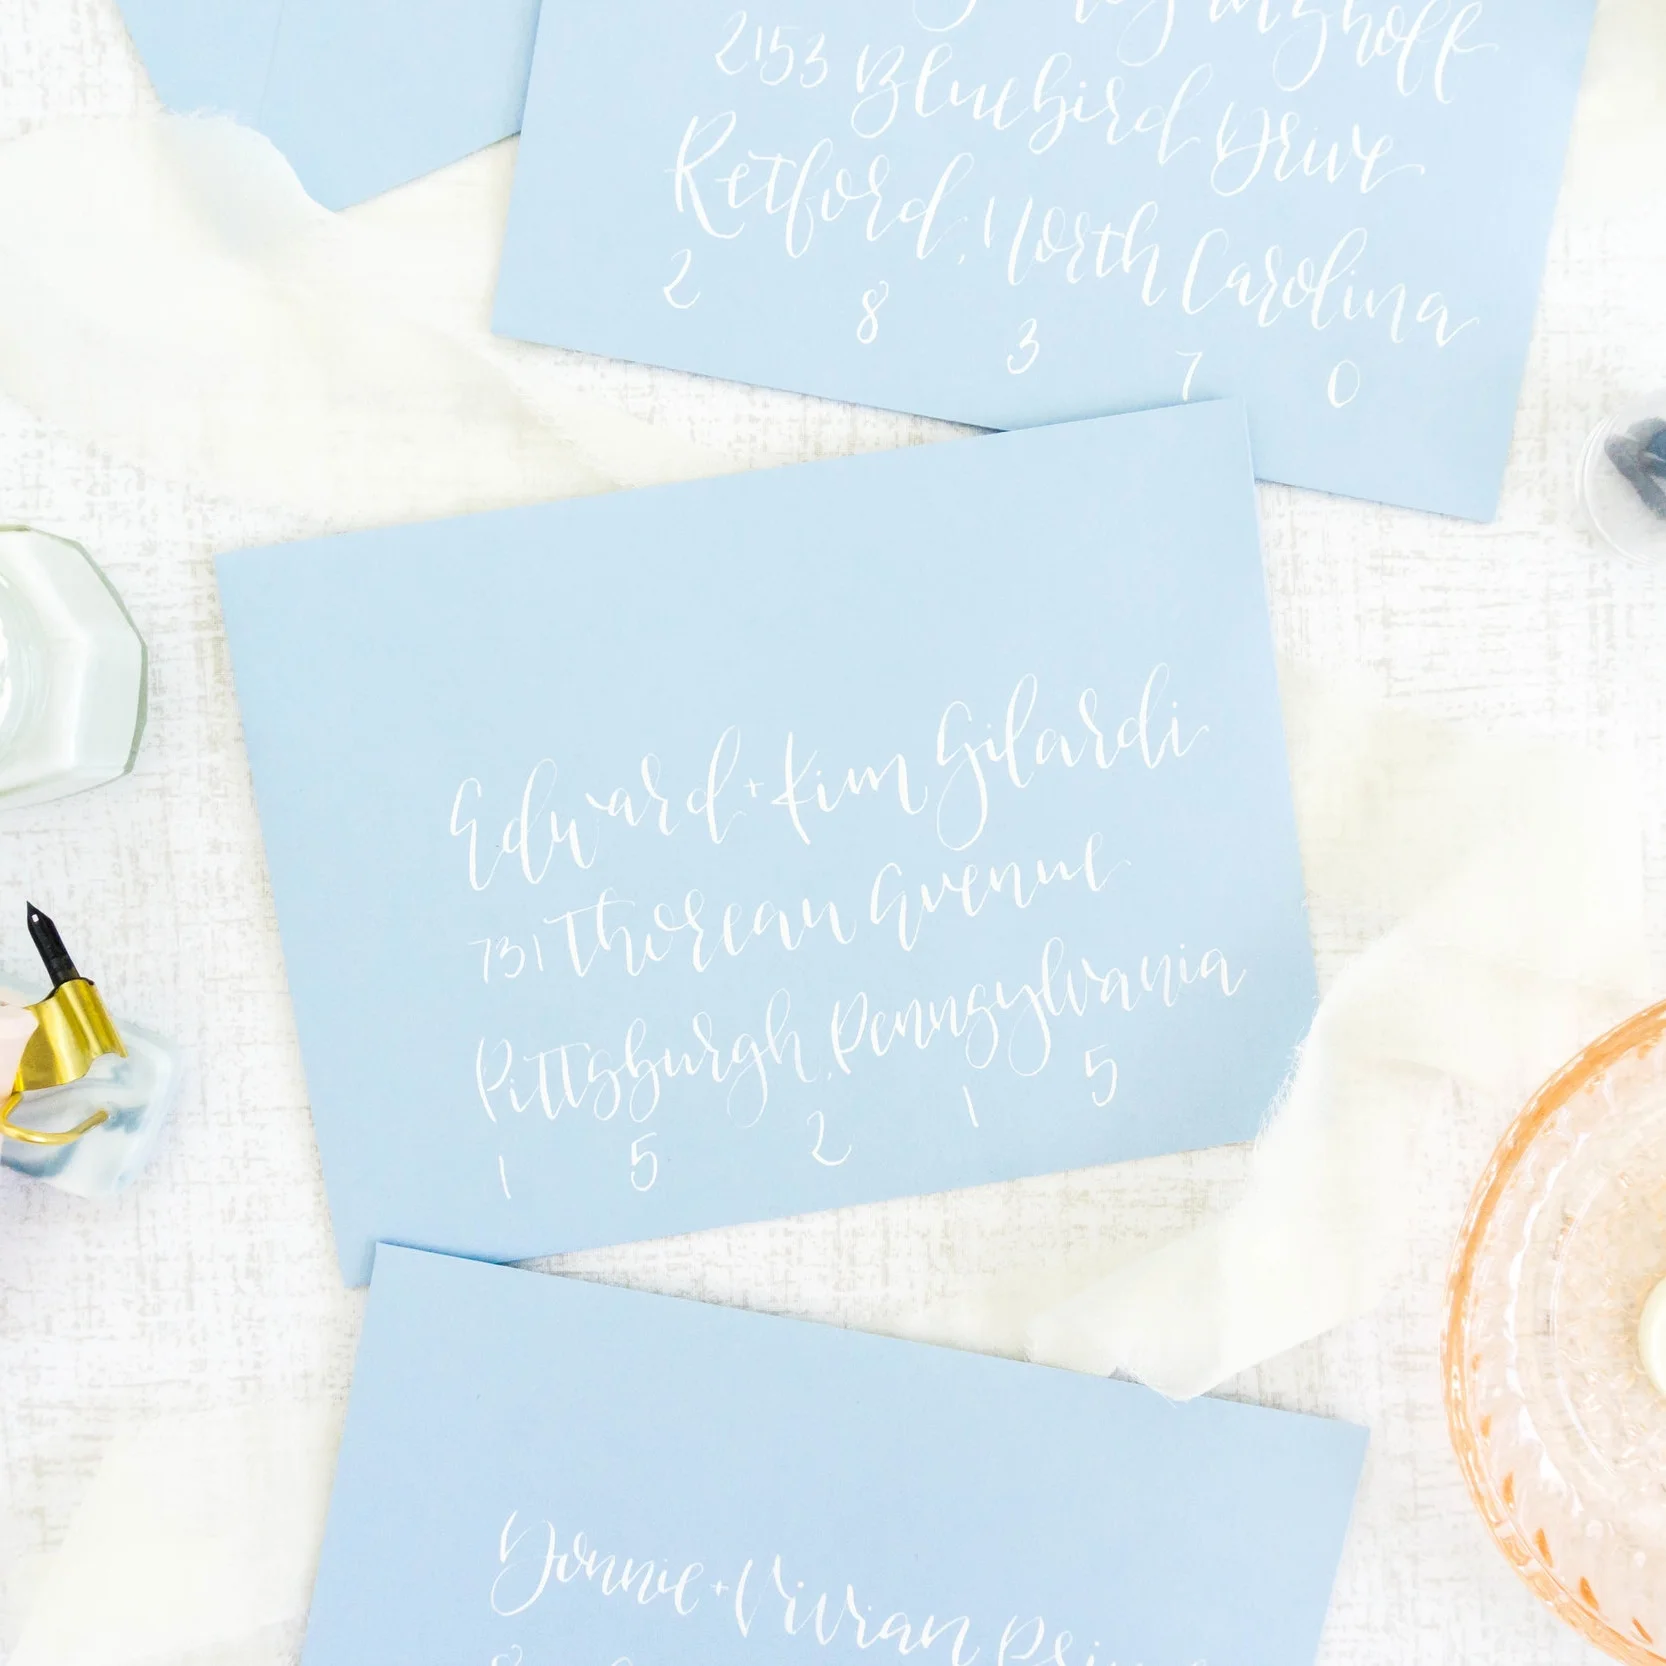 2153 Bluebird Drive
Retford, North Carolina
2 8 3 7 0
Edward + Kim Gilardi
731 Thoreau Avenue
Pittsburgh, Pennsylvania
1 5 2 1 5
Donnie + Vivian